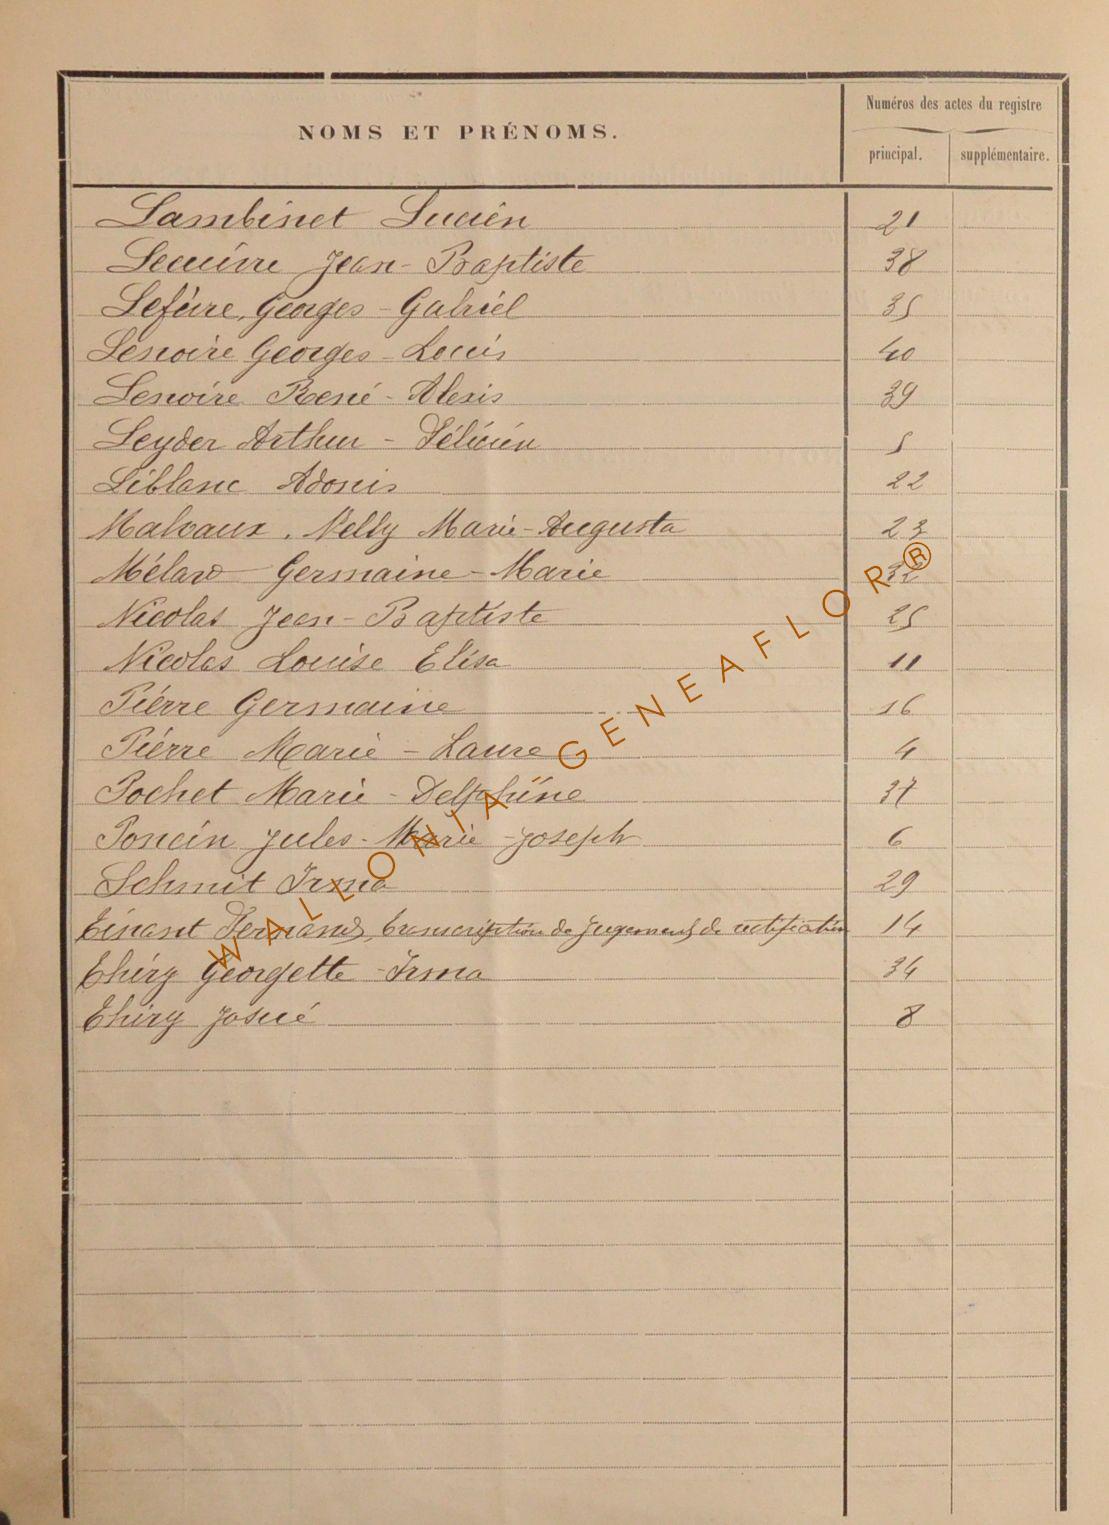 Numéros des actes du registre
NOMS ET PRÉNOMS.
principal. supplémentaire.
Lambinet Lucien 21
Lecuivre Jean-Baptiste 38
Lefèvre, Georges-Gabriel 35
Lenoire Georges-Louis 40
Lenoire René-Alexis 39
Leyder Arthur-Félicien 5
Liblanc Adonis 22
Malvaux, Nelly Marie-Augusta 23
Mélard Germaine-Marie 32
Nicolas Jean-Baptiste 25
Nicolas Louise Elisa 11
Pierre Germaine 16
Pierre Marie-Laure 4
Pochet Marie-Delphine 37
Poncin Jules-Marie-Joseph 6
Schmit Irma 29
Tinant Fernand, transcription de jugement de rectification 14
Thiry Georgette-Irma 34
Thiry Josué 8
WALLONIA GENEAFLOR®